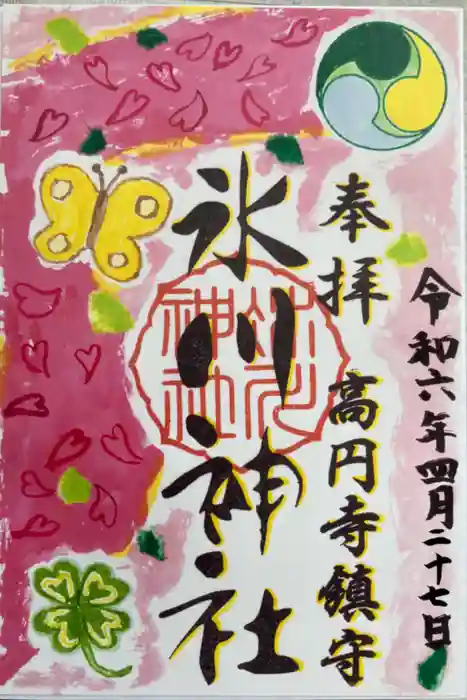 令和六年四月二十七日
奉拝 高円寺鎮守
氷川神社
氷川神社